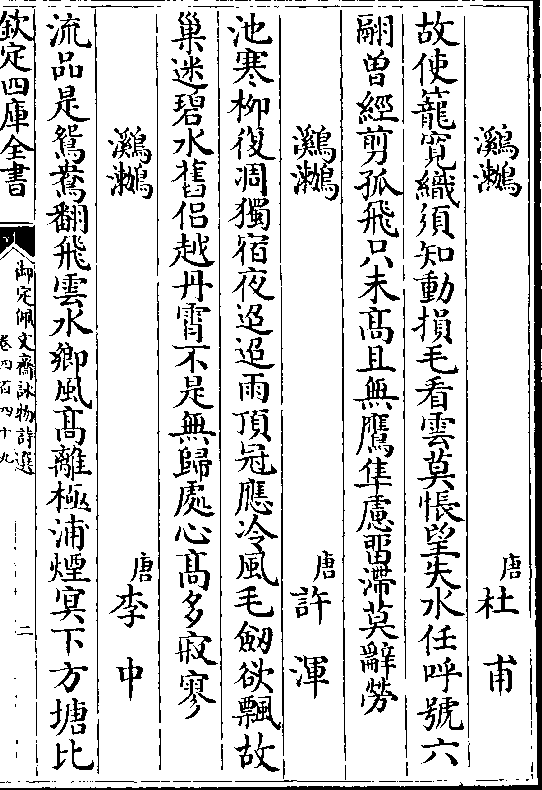 鸂鶒　唐杜甫
故使籠寛織須知動損毛看雲莫悵望失水任呼號六
翮曾經剪孤飛只未髙且無鷹隼慮留滯莫辭勞
鸂鶒　唐許渾
池寒柳復凋獨宿夜迢迢雨頂冠應冷風毛劒欲飄故
巢迷碧水舊侣越丹霄不是無歸處心髙多寂寥
鸂鶒　唐李中
流品是鴛鴦翻飛雲水鄉風髙離極浦煙寞下方塘比
欽定四庫全書
御定佩文齋詠物詩選
卷四百四十九
二